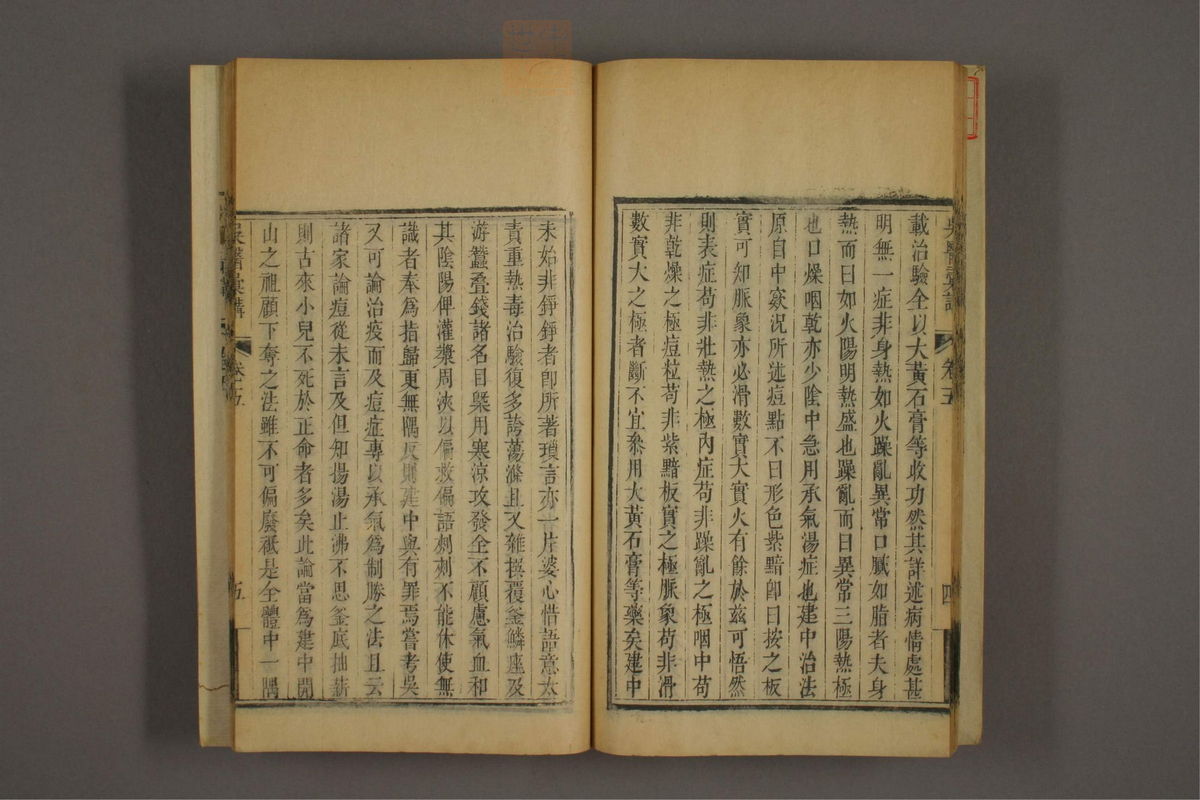 載治驗全以大黃石膏等收功然其詳述病情處甚
明無一症非身熱如火躁亂異常口膩如脂者夫身
熱而曰如火陽明熱盛也躁亂而曰異常三陽熱極
也口燥咽乾亦少陰中急用承氣湯症也建中治法
原自中窽況所述痘點不曰形色紫黯卽曰按之板
實可知脈象亦必滑數實大實火有餘於玆可悟然
則表症苟非壯熱之極內症苟非躁亂之極咽中苟
非乾燥之極痘粒苟非紫黯板實之極脈象苟非滑
數實大之極者斷不宜叅用大黃石膏等藥矣建中
吳醫彙講
卷五
四
未始非錚錚者卽所著瑣言亦一片婆心惜語意太
責重熱毒治驗復多誇蕩滌且又雜撰覆釜鱗座及
游蠶疊錢諸名目槩用寒涼攻發全不顧慮氣血和
其陰陽俾灌漿周浹以偏救偏語刻刻不能休使無
識者奉爲指歸更無隅反則建中與有罪焉嘗考吳
又可論治疫而及痘症專以承氣爲制勝之法且云
諸家論痘從未言及但知揚湯止沸不思釜底抽薪
則古來小兒不死於正命者多矣此論當爲建中開
山之祖顧下奪之法雖不可偏廢祗是全體中一隅
吳醫彙講
五